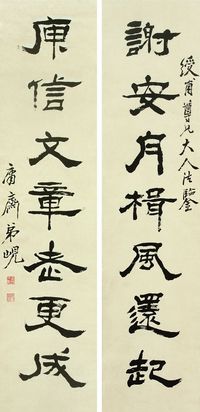 綬甫尊兄大人法鑒
謝安舟楫風還起
庾信文章老更成
庸齋弟峴